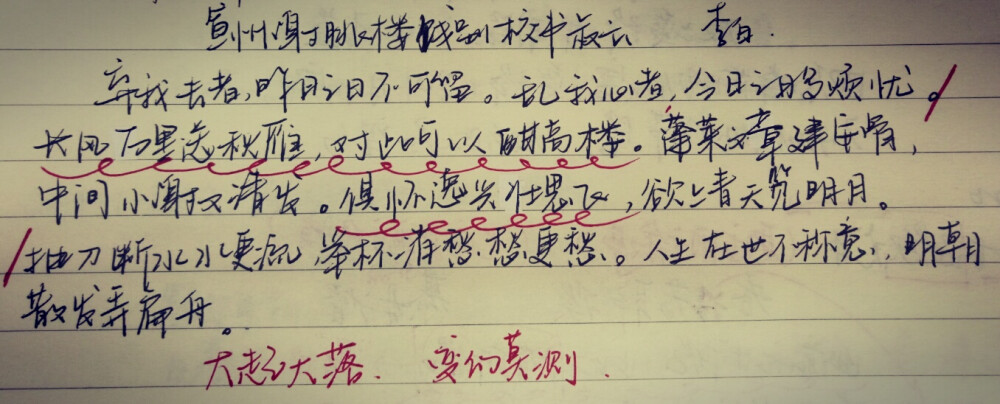 宣州谢朓楼饯别校书叔云 李白.
弃我去者,昨日之日不可留。乱我心者,今日之日多烦忧。
长风万里送秋雁,对此可以酣高楼。蓬莱文章建安骨,
中间小谢又清发。俱怀逸兴壮思飞,欲上青天览明月。
抽刀断水水更流,举杯消愁愁更愁。人生在世不称意,明朝
散发弄扁舟。
大起大落. 变幻莫测.